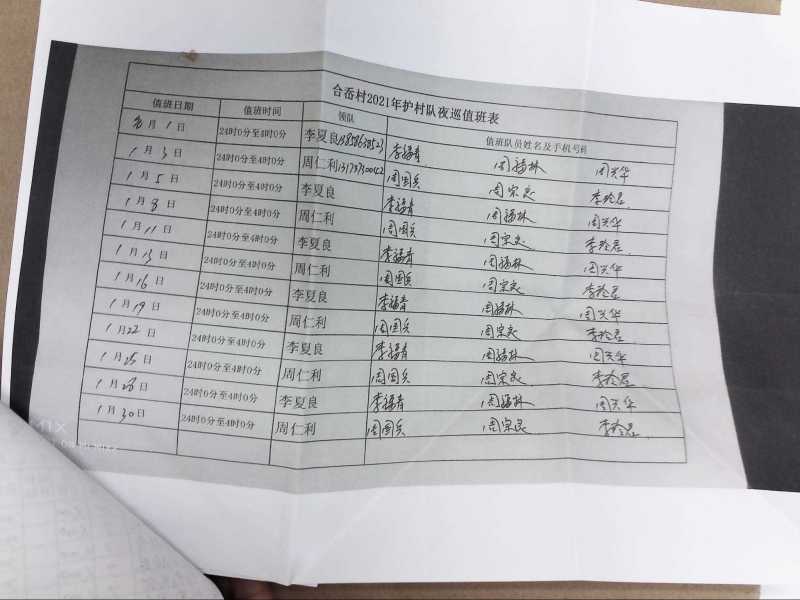 合岙村2021年护村队夜巡值班表
值班日期 值班时间 领队 值班队员姓名及手机号码
月1日 24时0分至4时0分 李夏良 李福青 周福林 周兴华
1月3日 24时0分至4时0分 周仁利 周国兵 周宗良 李玲君
1月5日 24时0分至4时0分 李夏良 李福青 周福林 周兴华
1月8日 24时0分至4时0分 周仁利 周国兵 周宗良 李玲君
1月11日 24时0分至4时0分 李夏良 李福青 周福林 周兴华
1月13日 24时0分至4时0分 周仁利 周国兵 周宗良 李玲君
1月16日 24时0分至4时0分 李夏良 李福青 周福林 周兴华
1月19日 24时0分至4时0分 周仁利 周国兵 周宗良 李玲君
1月22日 24时0分至4时0分 李夏良 李福青 周福林 周兴华
1月25日 24时0分至4时0分 周仁利 周国兵 周宗良 李玲君
1月28日 24时0分至4时0分 李夏良 李福青 周福林 周兴华
1月30日 24时0分至4时0分 周仁利 周国兵 周宗良 李玲君